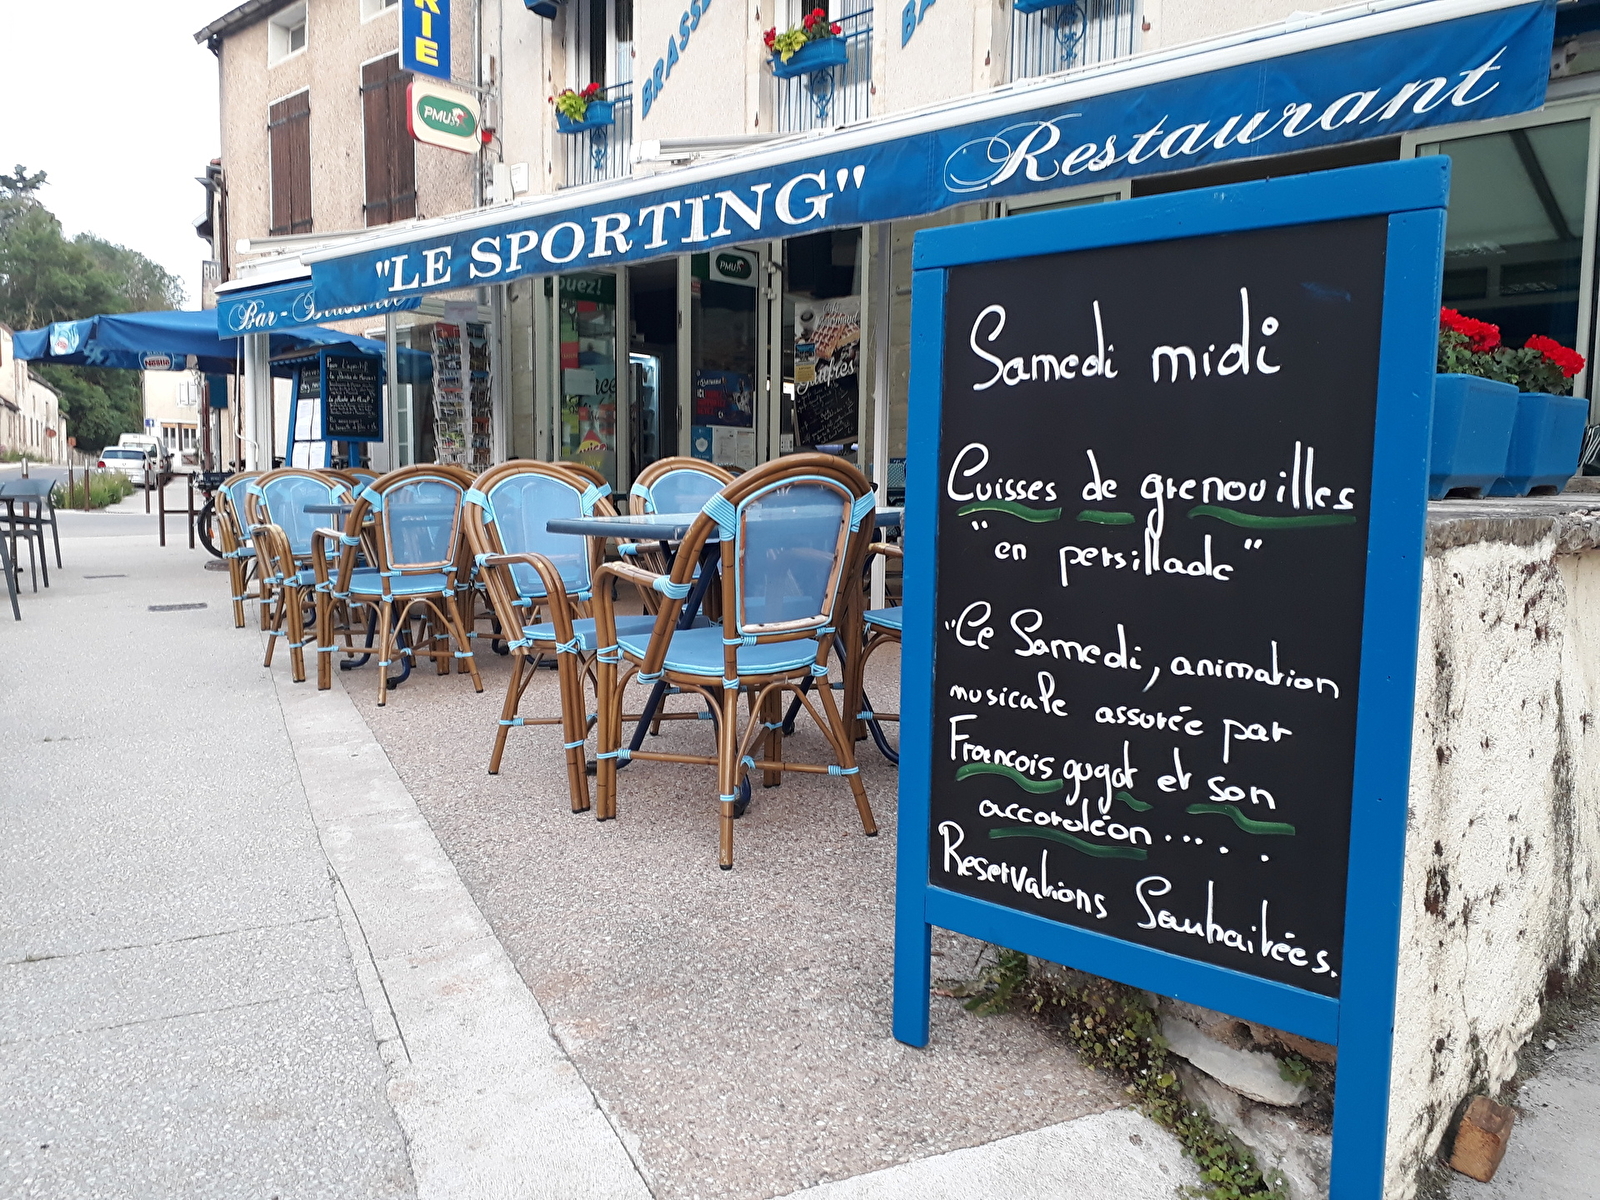 RIE
PMU
BRASSE
BA
"LE SPORTING"
Restaurant
Bar - Brasserie
Nestlé
PMU
Jouez!
Gaufres
Samedi midi
Cuisses de grenouilles
"en persillade"
"Ce Samedi, animation
musicale assurée par
François gugot et son
accordéon.....
Reservations Souhaitées.